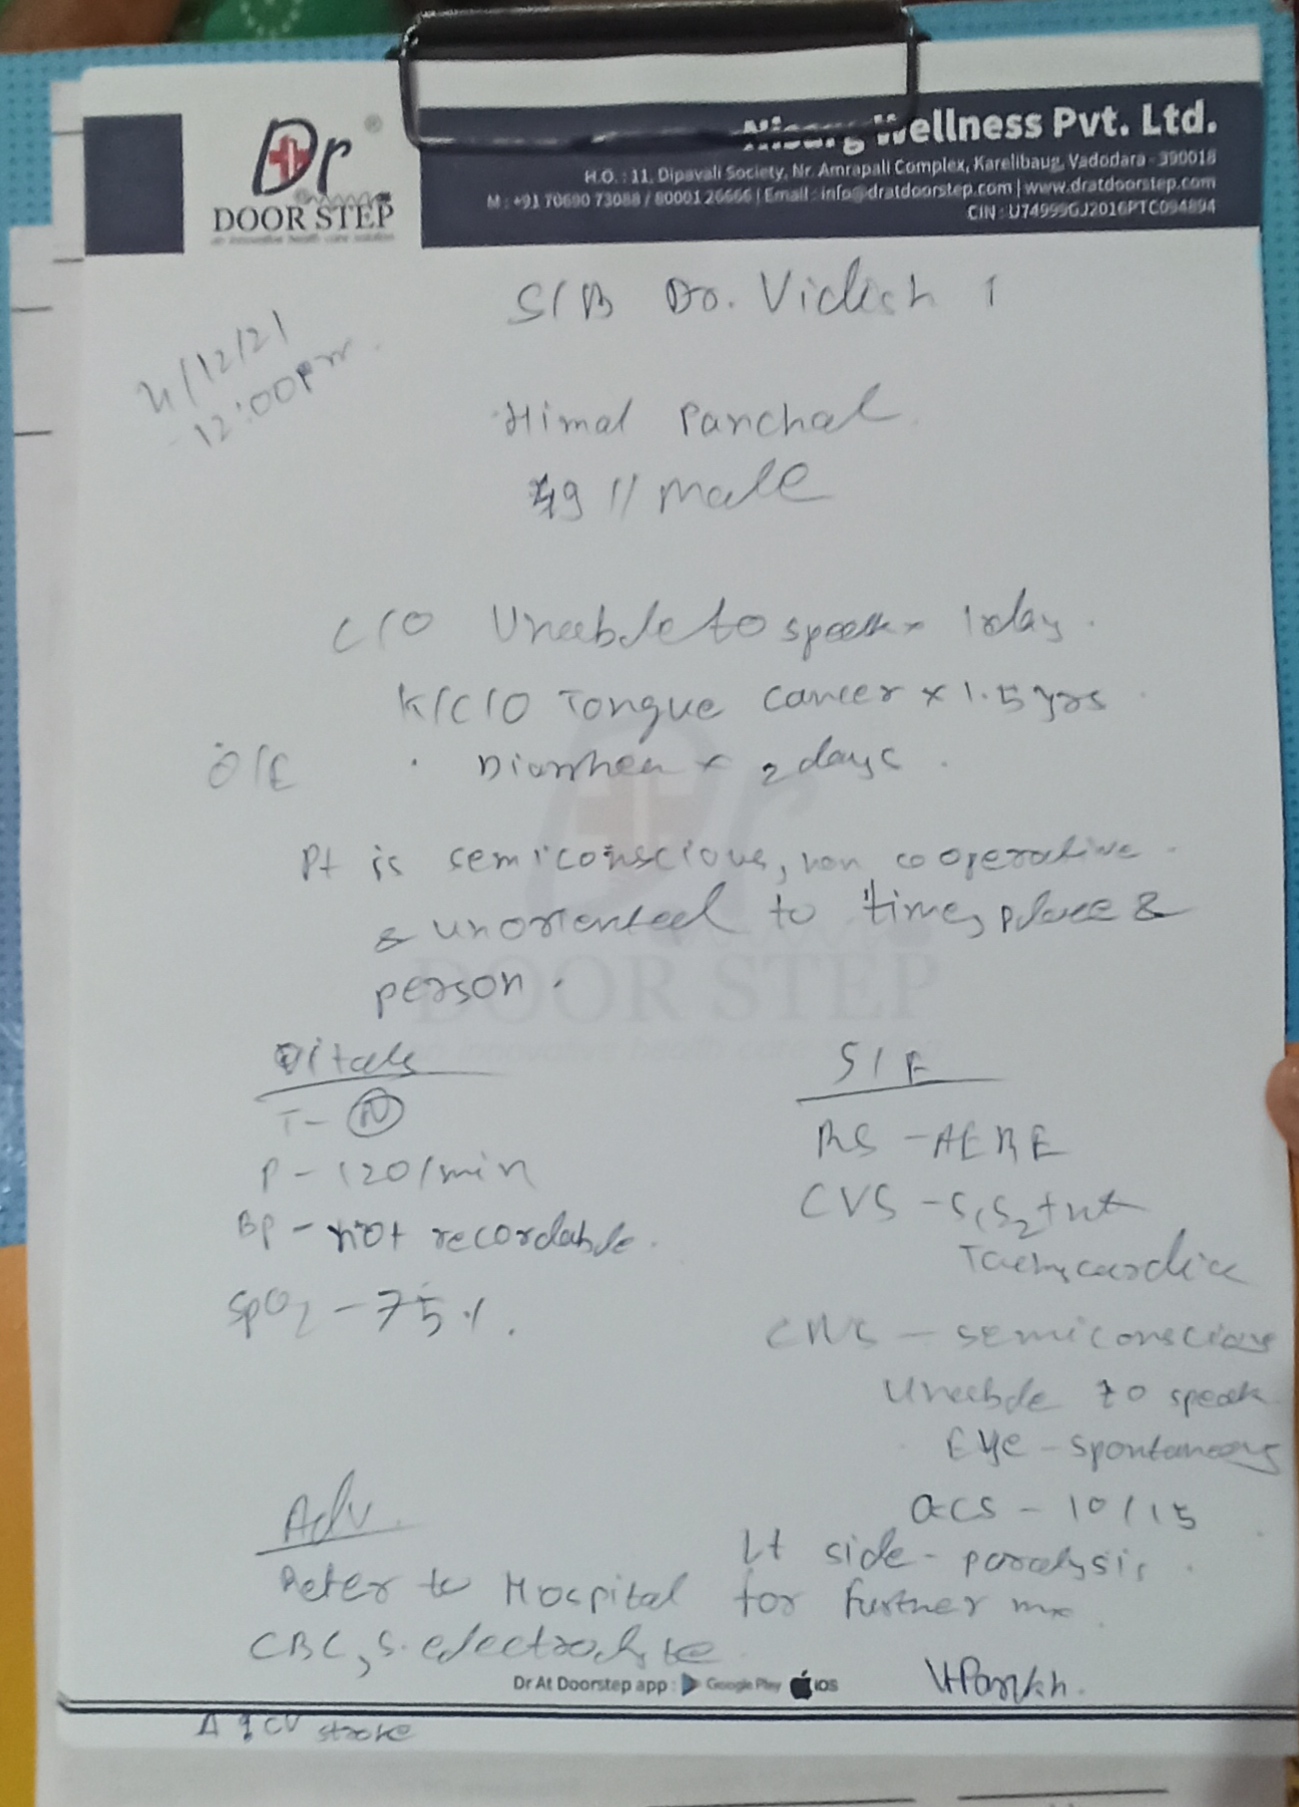 Dr
DOOR STEP
an innovative health care solution
Wellness Pvt. Ltd.
H.O. : 11, Dipavali Society, Nr. Amrapali Complex, Karelibaug, Vadodara - 390018
M : +91 70690 73088 / 80001 26666 | Email : info@dratdoorstep.com | www.dratdoorstep.com
CIN : U74999GJ2016PTC094894
S/B Dr.
/12/21
12:00pm
Himal Panchal
49 // male
C/O Unable to speak x 1day.
K/C/O Tongue cancer x 1.5 yrs
O/E . Diarrhea x 2 days.
Pt is semiconscious, non cooperative
& unoriented to time, place &
person.
Vitals
T- N
P - 120/min
BP - not recordable.
SpO2 - 75 %.
S/E
RS - AEBE
CVS - S1S2 +nt
Tachycardia
CNS - semiconscious
Unable to speak
Eye - spontaneous
GCS - 10/15
Lt side - paralysis.
Adv.
Refer to Hospital for further mx.
CBC, S. electrolyte
Dr At Doorstep app : Google Play iOS
stroke
DOOR STEP
an innovative health care